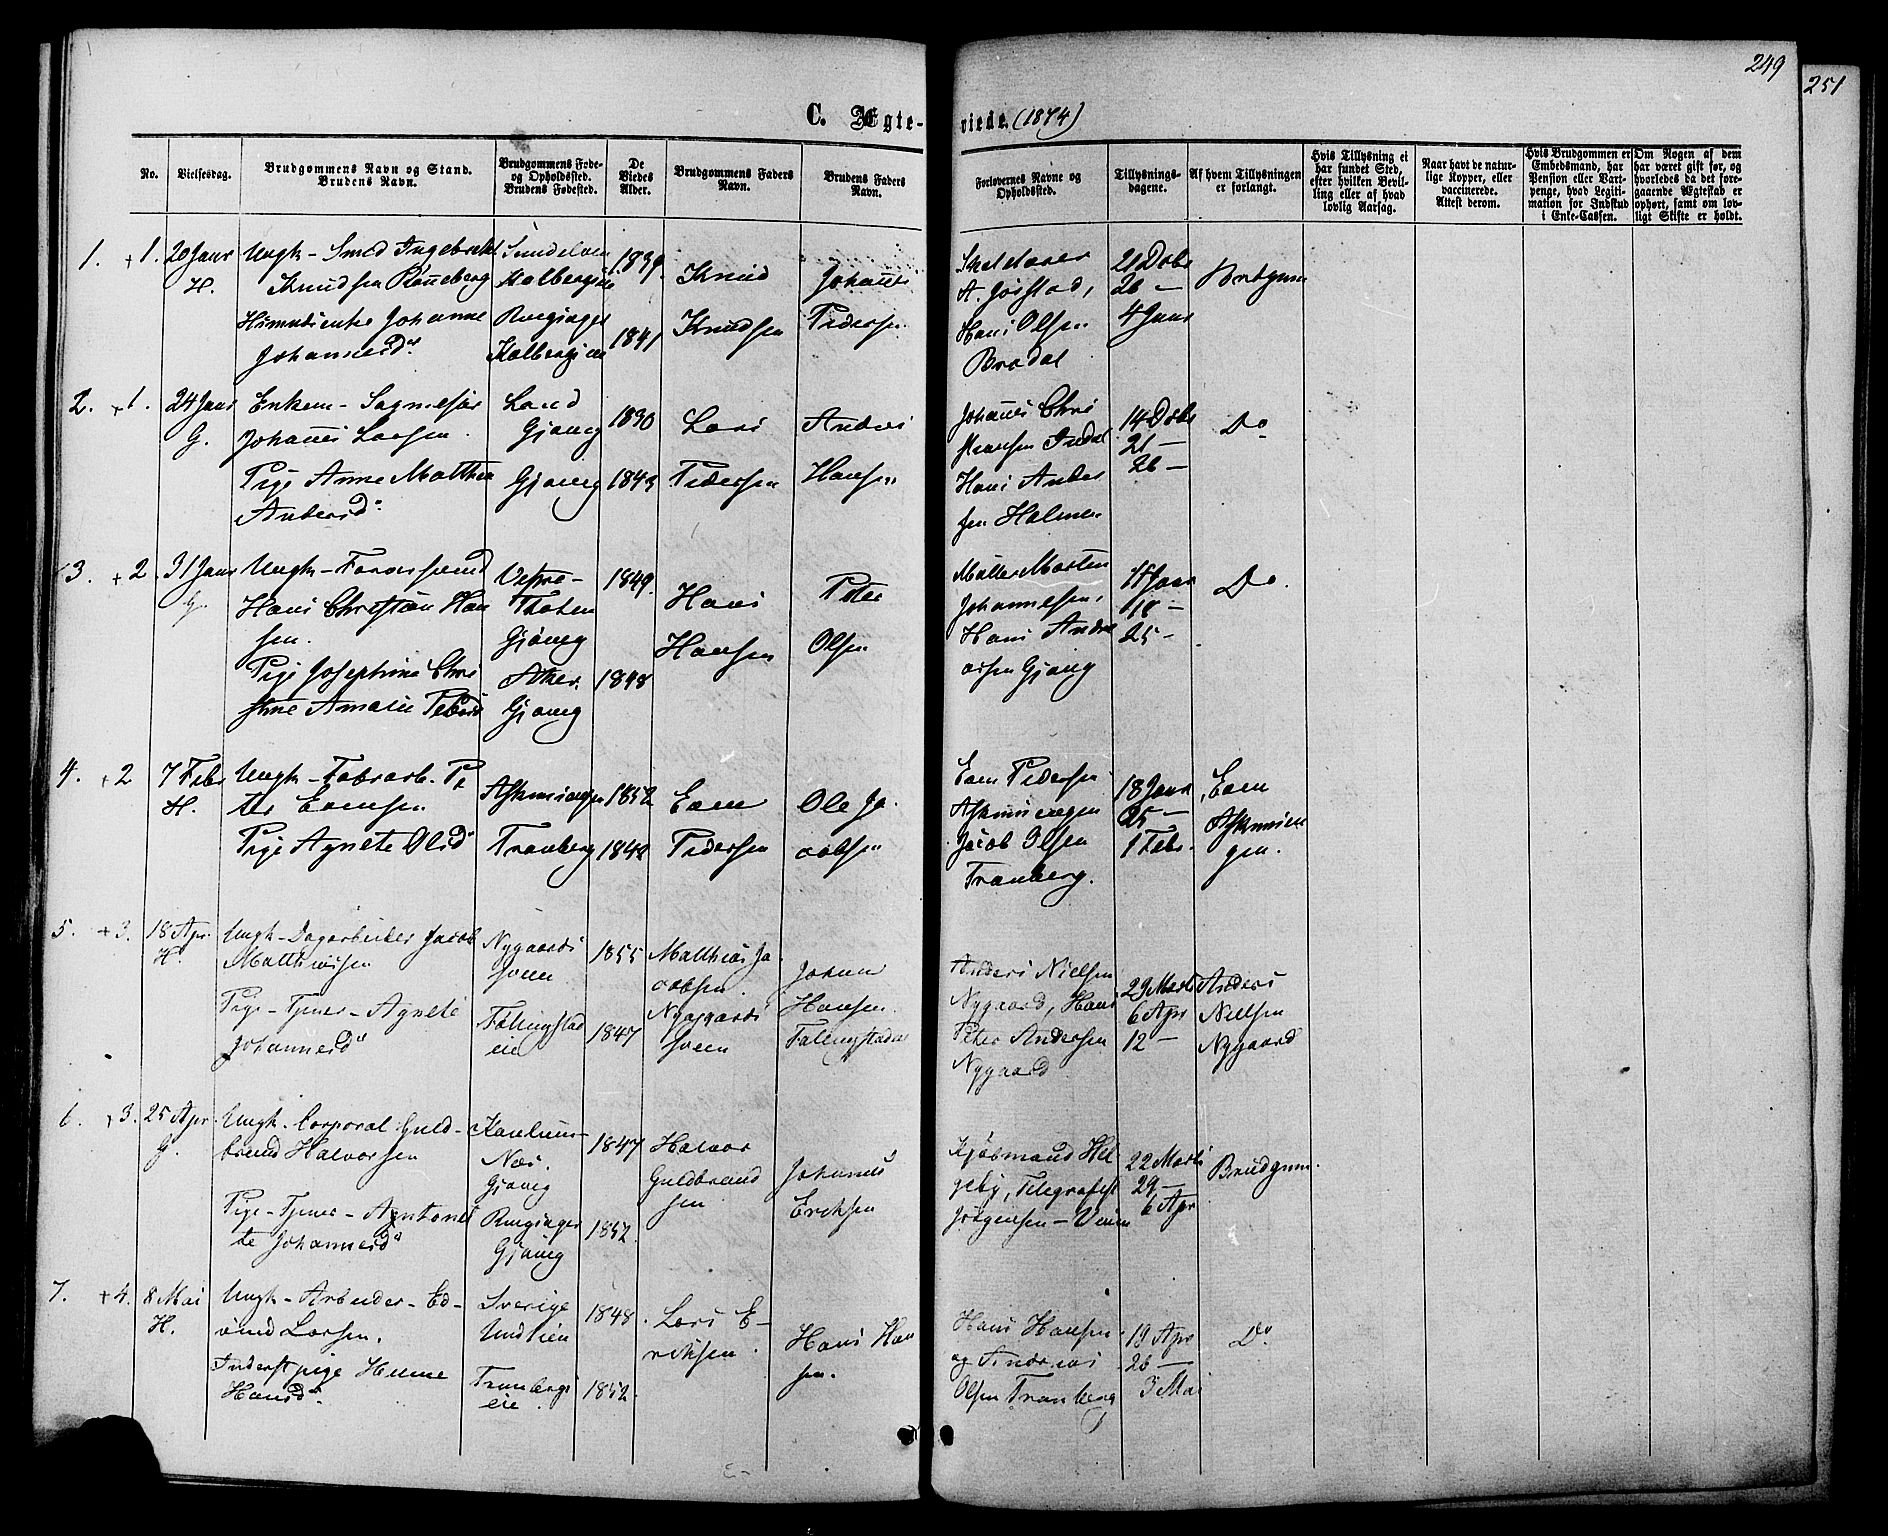 249
251
C. Ægte-
viede. (1874)
No.
Vielsesdag.
Brudgommens Navn og Stand.
Brudens Navn.
Brudgommens Føde-
og Opholdssted.
Brudens Fødested.
De
Viedes
Alder.
Brudgommens Faders
Navn.
Brudens Faders
Navn.
Forlovernes Navne og
Opholdssted.
Tillysnings-
dagene.
Af hvem Tillysningen
er forlangt.
Hvis Tillysning ei
har fundet Sted,
efter hvilken Bevil-
ling eller af hvad
lovlig Aarsag.
Naar havt de natur-
lige Kopper, eller
vaccinerede.
Attest derom.
Hvis Brudgommen er
Embedsmand, har
Pension eller Vart-
penge, hvad Legiti-
mation for Indskud
i Enke-Cassen.
Om Nogen af dem
har været gift før, og
hvorledes da det fore-
gaaende Ægteskab er
ophørt, samt om lov-
ligt Skifte er holdt.
1. + 1. 20 Janr
H.
Ungk - Smed Ingebrekt
Knudsen Rønneberg
Huusmdsenke Johanne
Johannesd.
1839.
1841
Knud
Knudsen
Johannes
Pedersen
A. Jørstad,
Hans Olsen
Bradal
21 Debr
28 -
4 Janr
Brudgum
2. + 1. 24 Janr
G.
Enkem - Sagmester
Johannes Larsen
Pige Anne Matthea
Andersd.
Land
Gjøvig
Gjøvig
1830
1843
Lars
Pedersen
Anders
Hansen
Johannes Chri
stiansen Indal
Hans Ander
sen Holmen
14 Debr
21 -
28 -
Do
3. + 2 31 Janr
G.
Ungk - Farversvend
Hans Christian Han
sen.
Pige Josephine Chri
stine Amalie Pedersd
Vestre-
Thoten
Gjøvig
Aker.
Gjøvig
1849.
1848
Hans
Hansen
Peter
Olsen
Møller Morten
Johannesen,
Hans Andre
assen Gjøvig
11 Janr
18 -
25 -
Do.
4. + 2 7 Febr
H.
Ungk - Fabrarb. Pe
ter Evensen
Pige Agnete Olsd
Tranberg
1852
1842
Even
Pedersen
Ole Ja
cobsen
Even Pedersen
Jacob Olsen
Tranberg.
18 Janr
25 -
1 Febr.
Even
5. + 3. 18 Apr.
H.
Ungk - Dagarbeider Jacob
Matthiassen
Pige - Tjener - Agnete
Johannesd
Nygaards
sveen
Falengstad
eie
1855
1847
Matthias Ja
cobsen.
Nygaards
sveen
Johan
Hansen.
Anders Nielsen
Nygaard, Hans
Peter Andersen
Nygaard
29 Marts
6 Apr
12 -
Anders
Nielsen
Nygaard
6. + 3. 25 Apr
G.
Ungk - Corporal Guld-
brand Halvorsen
Pige - Tjener - Antonet
te Johannesd
Næs.
Gjøvig
Gjøvig
1847
1852.
Halvor
Guldbrand
sen
Johannes
Eriksen
Kjøbmand Hel
geby, Telegrafist
Jørgensen -
22 Marts
29 -
6 Apr
Brudgum.
7. + 4. 8 Mai
H.
Ungk - Arbeider - Ed-
vind Larsen.
Inderst pige Helene
Hansd.
Sverige
Tranbergs
eie.
1848.
1852.
Lars E-
riksen.
Hans Han
sen.
Hans Hansen
og Andreas
Olsen Tranberg
19 Apr
26 -
3 Mai
Do